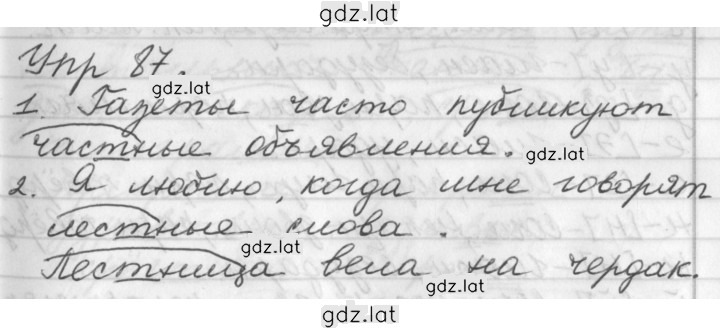 gdz.lat
Упр 87.
gdz.lat
1. Газеты часто публикуют
частные объявления.
gdz.lat
2. Я люблю, когда мне говорят
лестные слова.
gdz.lat
Лестница вела на чердак.
gdz.lat
gdz.lat